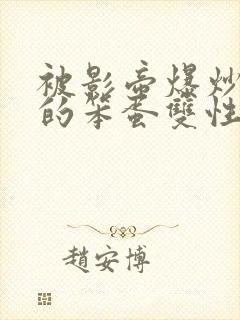 被影帝爆炒
的笨蛋雙性
趙安博